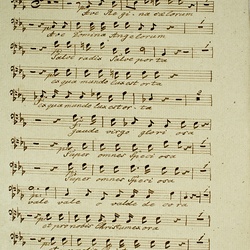 Ave Regina caelorum
Ave Domina Angelorum
Salve radix salve porta
ex qua mundo lux est orta
ex qua mundo lux est orta
Gaude virgo gloriosa
Super omnes speciosa
Super omnes speciosa
vale vale valde decora
et pro nobis Christum exora